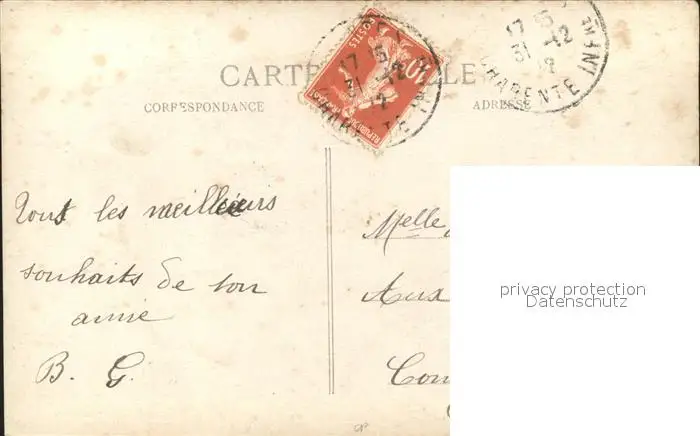 CARTE
CORRESPONDANCE
ADRESSE
POSTES
10
17 15
31 -12
12
CHARENTE INFRE
Tous les meilleurs
souhaits de ton
amie
B. G.
Melle
Aux
privacy protection
Datenschutz